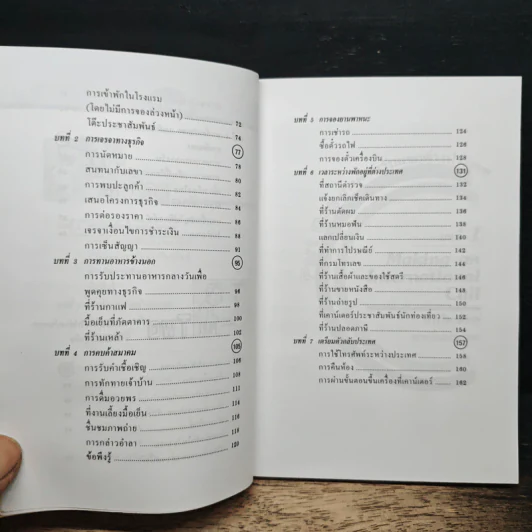 การเข้าพักในโรงแรม
(โดยไม่มีการจองล่วงหน้า) 72
โต๊ะประชาสัมพันธ์ 74
บทที่ 2 การเจรจาทางธุรกิจ 77
การนัดหมาย 78
สนทนากับเลขา 80
การพบปะลูกค้า 82
เสนอโครงการธุรกิจ 84
การต่อรองราคา 86
เจรจาเงื่อนไขการชำระเงิน 88
การเซ็นสัญญา 91
บทที่ 3 การทานอาหารข้างนอก 95
การรับประทานอาหารกลางวันเพื่อ
พูดคุยทางธุรกิจ 96
ที่ร้านกาแฟ 98
มื้อเย็นที่ภัตตาคาร 100
ที่ร้านเหล้า 102
บทที่ 4 การคบค้าสมาคม 105
การรับคำเชื้อเชิญ
การทักทายเจ้าบ้าน
การดื่มอวยพร
ที่งานเลี้ยงมื้อเย็น
ชื่นชมภาพถ่าย
การกล่าวอำลา
ข้อพึงรู้ 120
บทที่ 5 การจองยานพาหนะ
การเช่ารถ 124
ซื้อตั๋วรถไฟ 126
การจองตั๋วเครื่องบิน 128
บทที่ 6 เวลาระหว่างพักอยู่ที่ต่างประเทศ 131
ที่สถานีตำรวจ 132
แจ้งยกเลิกเช็คเดินทาง 134
ที่ร้านตัดผม 136
ที่ร้านหมอฟัน 138
แลกเปลี่ยนเงิน 140
ที่ทำการไปรษณีย์ 142
ที่กรมโทรเลข 144
ที่ร้านเสื้อผ้าและของใช้สตรี 146
ที่ร้านขายหนังสือ 148
ที่ร้านถ่ายรูป 150
ที่เคาน์เตอร์ประชาสัมพันธ์นักท่องเที่ยว 152
ที่ร้านปลอดภาษี 154
บทที่ 7 เตรียมตัวกลับประเทศ 157
การใช้โทรศัพท์ระหว่างประเทศ 158
การคืนห้อง 160
การผ่านขั้นตอนขึ้นเครื่องที่เคาน์เตอร์ 162